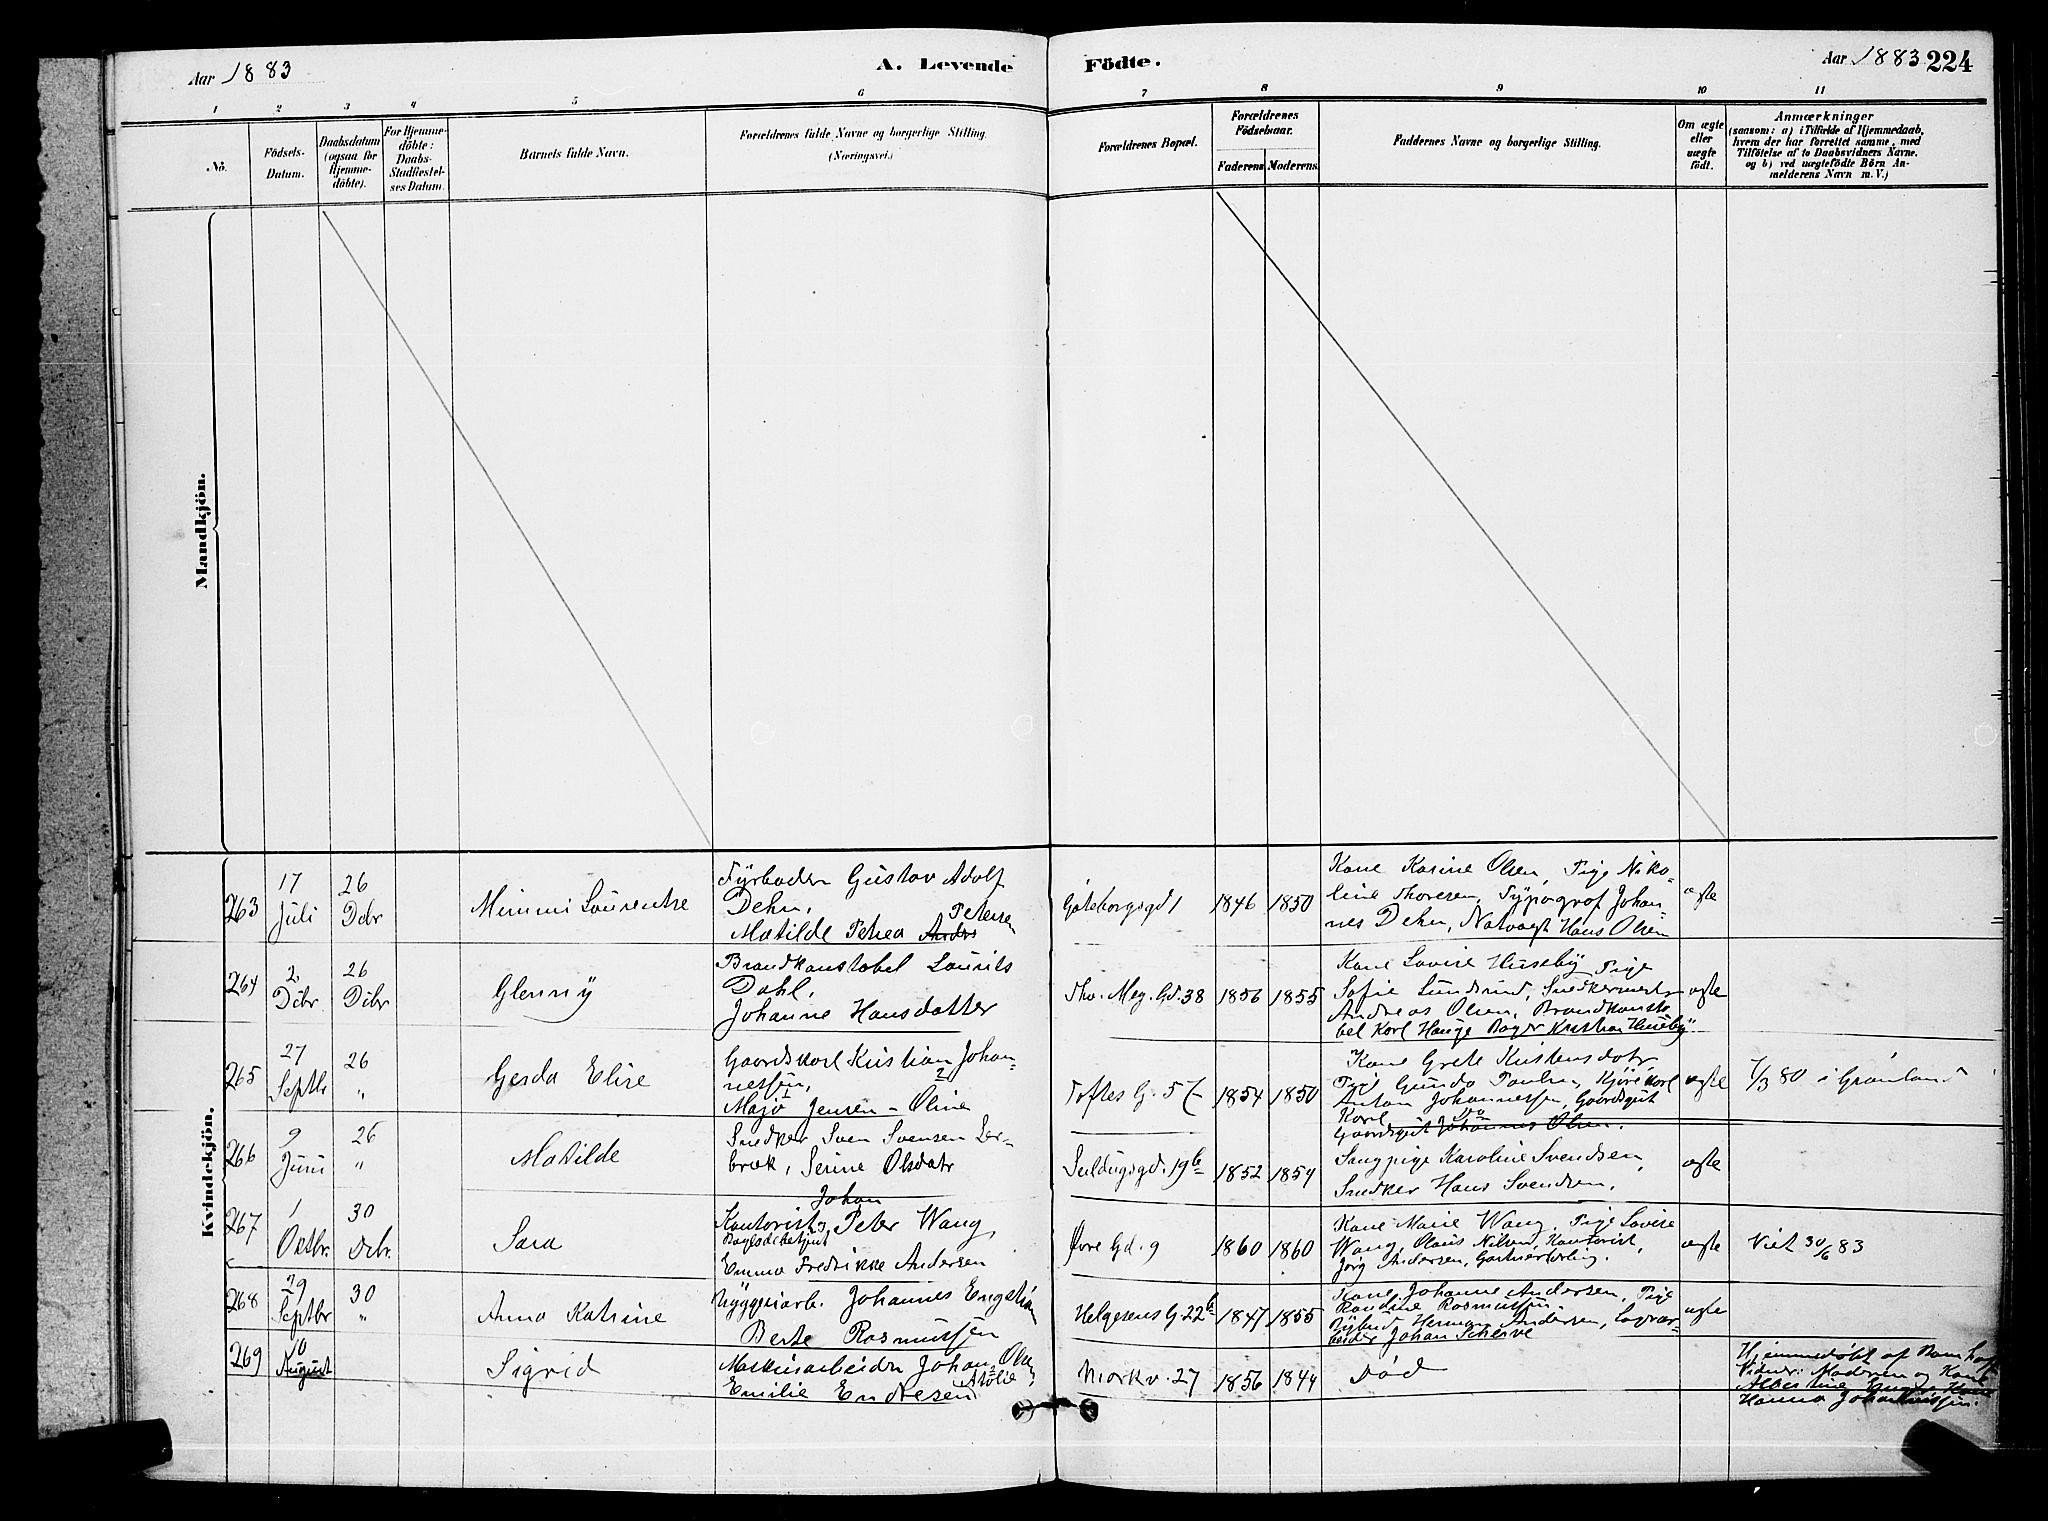 Aar 1883
A. Levende
Födte.
Aar 1883
224
1 2 3 4 5 6 7 8 9 10 11
No.
Födsels-
Datum.
Daabsdatum
(ogsaa for
Hjemme-
döbte).
For Hjemme-
döbte:
Daabs-
Stadfæstel-
ses Datum.
Barnets fulde Navn.
Forældrenes fulde Navne og borgerlige Stilling.
(Næringsvei.)
Forældrenes Bopæl.
Forældrenes
Födselsaar.
Faderens
Moderens.
Faddernes Navne og borgerlige Stilling.
Om ægte
eller
uægte
födt.
Anmærkninger
(saasom: a) i Tilfælde af Hjemmedaab,
hvem der har forrettet samme, med
Tilföielse af to Daabsvidners Navne.
og b) ved uægtefödte Börn An-
melderens Navn m. V.)
Mandkjön.
Kvindekjön.
263
17
Juli
26
Dcbr
Mimmi Laurentse
Fyrböder Gustav Adolf
Dehn,
Petersen
Matilde Petrea Anders
Göteborgsgd 1
1846
1850
Kone Karine Olsen, Pige Niko-
line Thoresen, Typograf Johan-
nes Dehn, Natvægt Hans Olsen
ægte
264
2
Dcbr
26
Dcbr
Glenny
Brandkonstabel Laurits
Dahl,
Johanne Hansdatter
Thv. Mey. Gd. 38
1856
1855
Kone Lovise Huseby Pige
Sofie Lundsrud, Snedkermest
Andreas Olsen, Brandkonsta
bel Karl Hauge Bager Kristian Huseby
ægte
265
27
Septbr
26
"
Gerda Elise
Gaardskarl Kristian Johan-
nessen,
Maja Jensen - Oline
Toftes G. 57
1854
1850
Kone Grete Kristensdatr
Pige Gunda Paulsen, Kjørekarl
Anton Johannessen, Gaardsgut
Karl do
Gaardsgut Johannes Olsen.
ægte
7/3 80 i Grønland
266
9
Juni
26
"
Matilde
Snedker Sven Svensen Ler-
bræk, Serine Olsdatr
Seildugsgd. 19b
1852
1854
Sangpige Karoline Svendsen,
Snedker Hans Svendsen,
ægte
267
1
Oktbr.
30
Dcbr.
Sara
Johan
Kontorist Peter Wang,
Emma Fredrikke Andersen
Øvre Gd. 9
1860
1860
Kone Marie Wang, Pige Lovise
Wang, Olaus Nilsen, Kontorist,
Jörg Andersen, Gartnerlærling.
ægte
Viet 30/6 83
268
29
Septbr
30
"
Anna Katrine
Byggeiarb. Johannes Engström
Berte Rasmussen
Helgesens G. 22b
1847
1855
Kone Johanne Andersen, Pige
Randine Rasmussen.
Bybud Herman Andersen, Lavar-
beider Johan Scherve
ægte
269
10
August
Sigrid
Maskinarbeider Johan Olsen,
Emilie Atalie Endresen
Markv. 27
1856
1844
Død
Hjemmedøbt af Bomhoff
Vidner: Moderen og Kone
Albertine Kone
Hanna Johannessen.